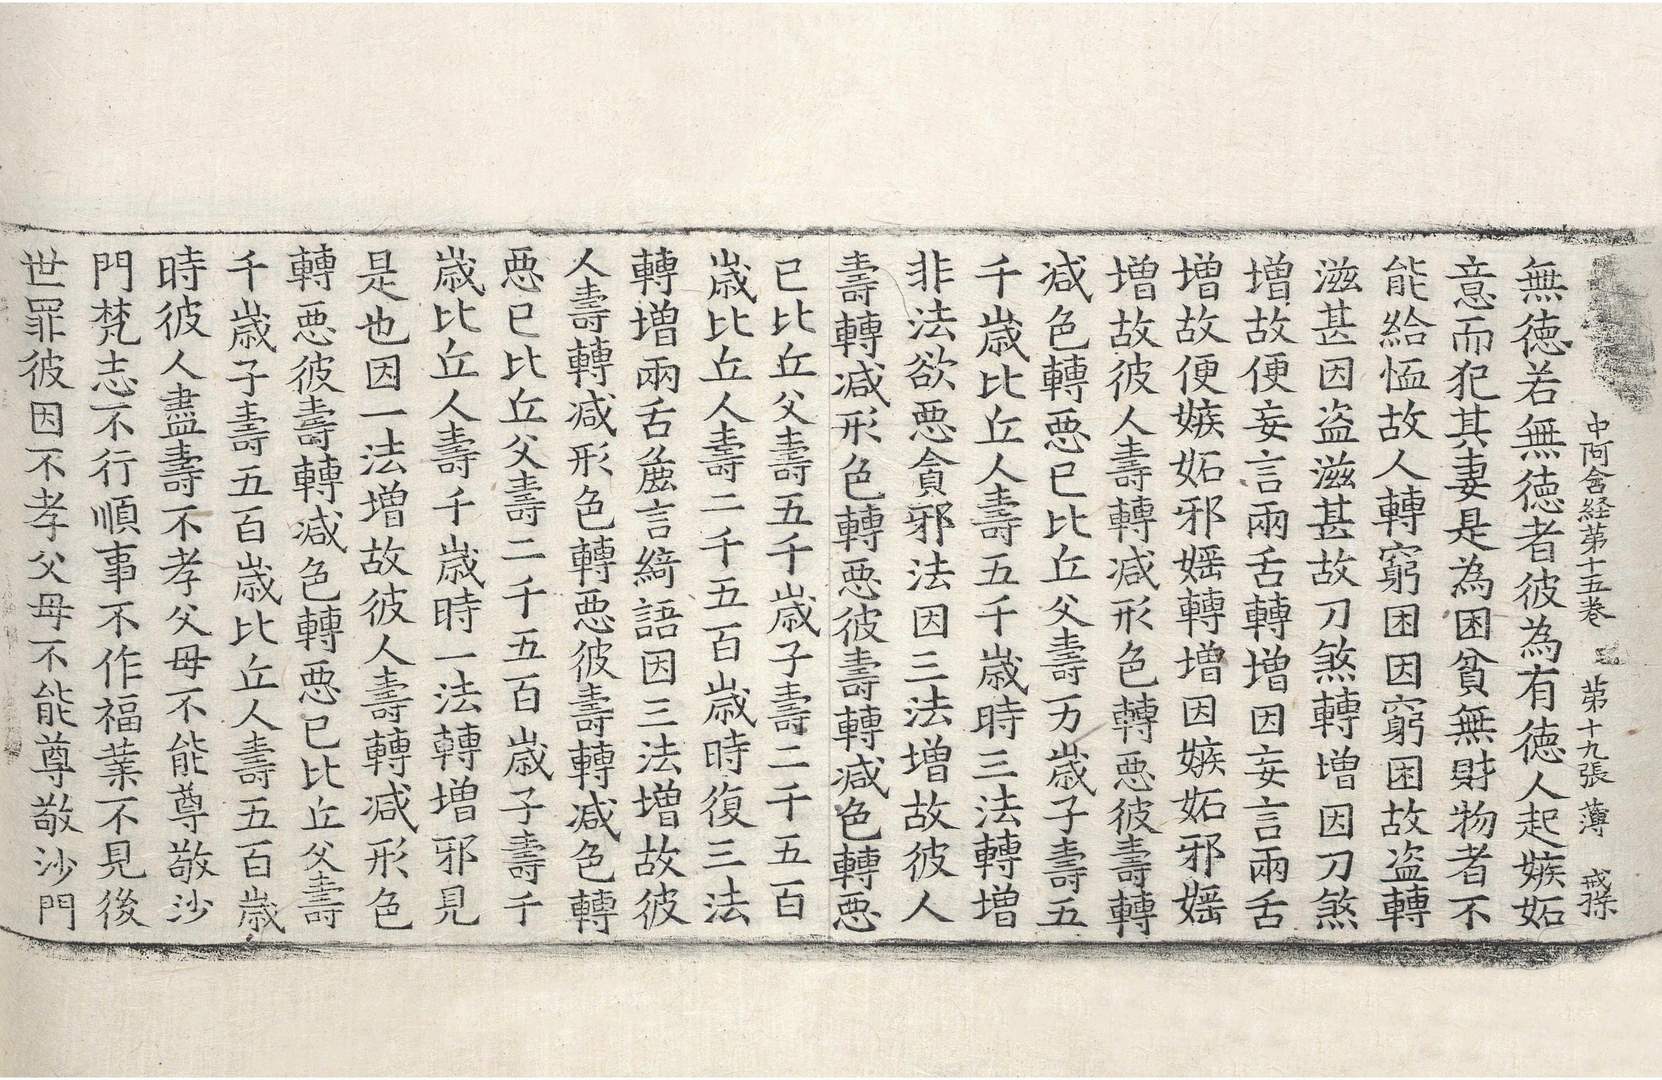 中阿含経第十五巻 第十九張 薄 戒
無德若無德者彼為有德人起嫉妬
意而犯其妻是為困貧無財物者不
能給恤故人轉窮困因窮困故盗轉
滋甚因盗滋甚故刀煞轉增因刀煞
增故便妄言兩舌轉增因妄言兩舌
增故便嫉妬邪婬轉增因嫉妬邪婬
增故彼人壽轉减形色轉惡彼壽轉
减色轉惡已比丘父壽万歲子壽五
千歲比丘人壽五千歲時三法轉增
非法欲惡貪邪法因三法增故彼人
壽轉减形色轉惡彼壽轉减色轉惡
已比丘父壽五千歲子壽二千五百
歲比丘人壽二千五百歲時復三法
轉增兩舌麁言綺語因三法增故彼
人壽轉减形色轉惡彼壽轉减色轉
惡已比丘父壽二千五百歲子壽千
歲比丘人壽千歲時一法轉增邪見
是也因一法增故彼人壽轉减形色
轉惡彼壽轉减色轉惡已比丘父壽
千歲子壽五百歲比丘人壽五百歲
時彼人盡壽不孝父母不能尊敬沙
門梵志不行順事不作福業不見後
世罪彼因不孝父母不能尊敬沙門